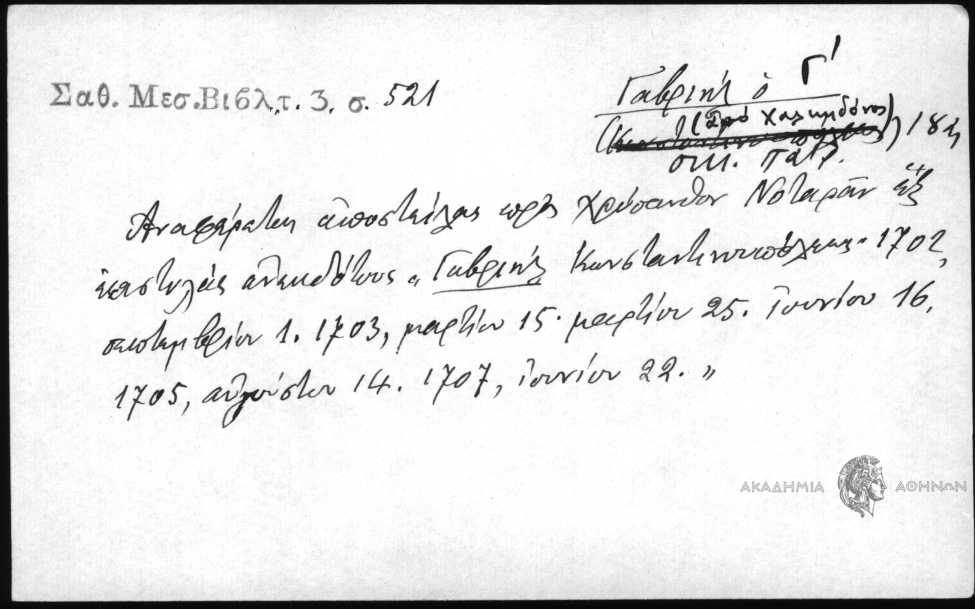 Σαθ. Μεσ. Βιβλ. τ. 3, σ. 521
Γαβριὴλ ὁ Γ'
(ἀπό Χαλκηδόνος) 18η
οἰκ. πατρ.
Ἀναφέρεται ἀποστείλας πρὸς Χρύσανθον Νοταρᾶν ἓξ
ἐπιστολὰς ἀνεκδότους „Γαβριὴλ Κωνσταντινουπόλεως. 1702,
σεπτεμβρίου 1. 1703, μαρτίου 15. μαρτίου 25. ἰουνίου 16.
1705, αὐγούστου 14. 1707, ἰουνίου 22."
ΑΚΑΔΗΜΙΑ ΑΘΗΝΩΝ